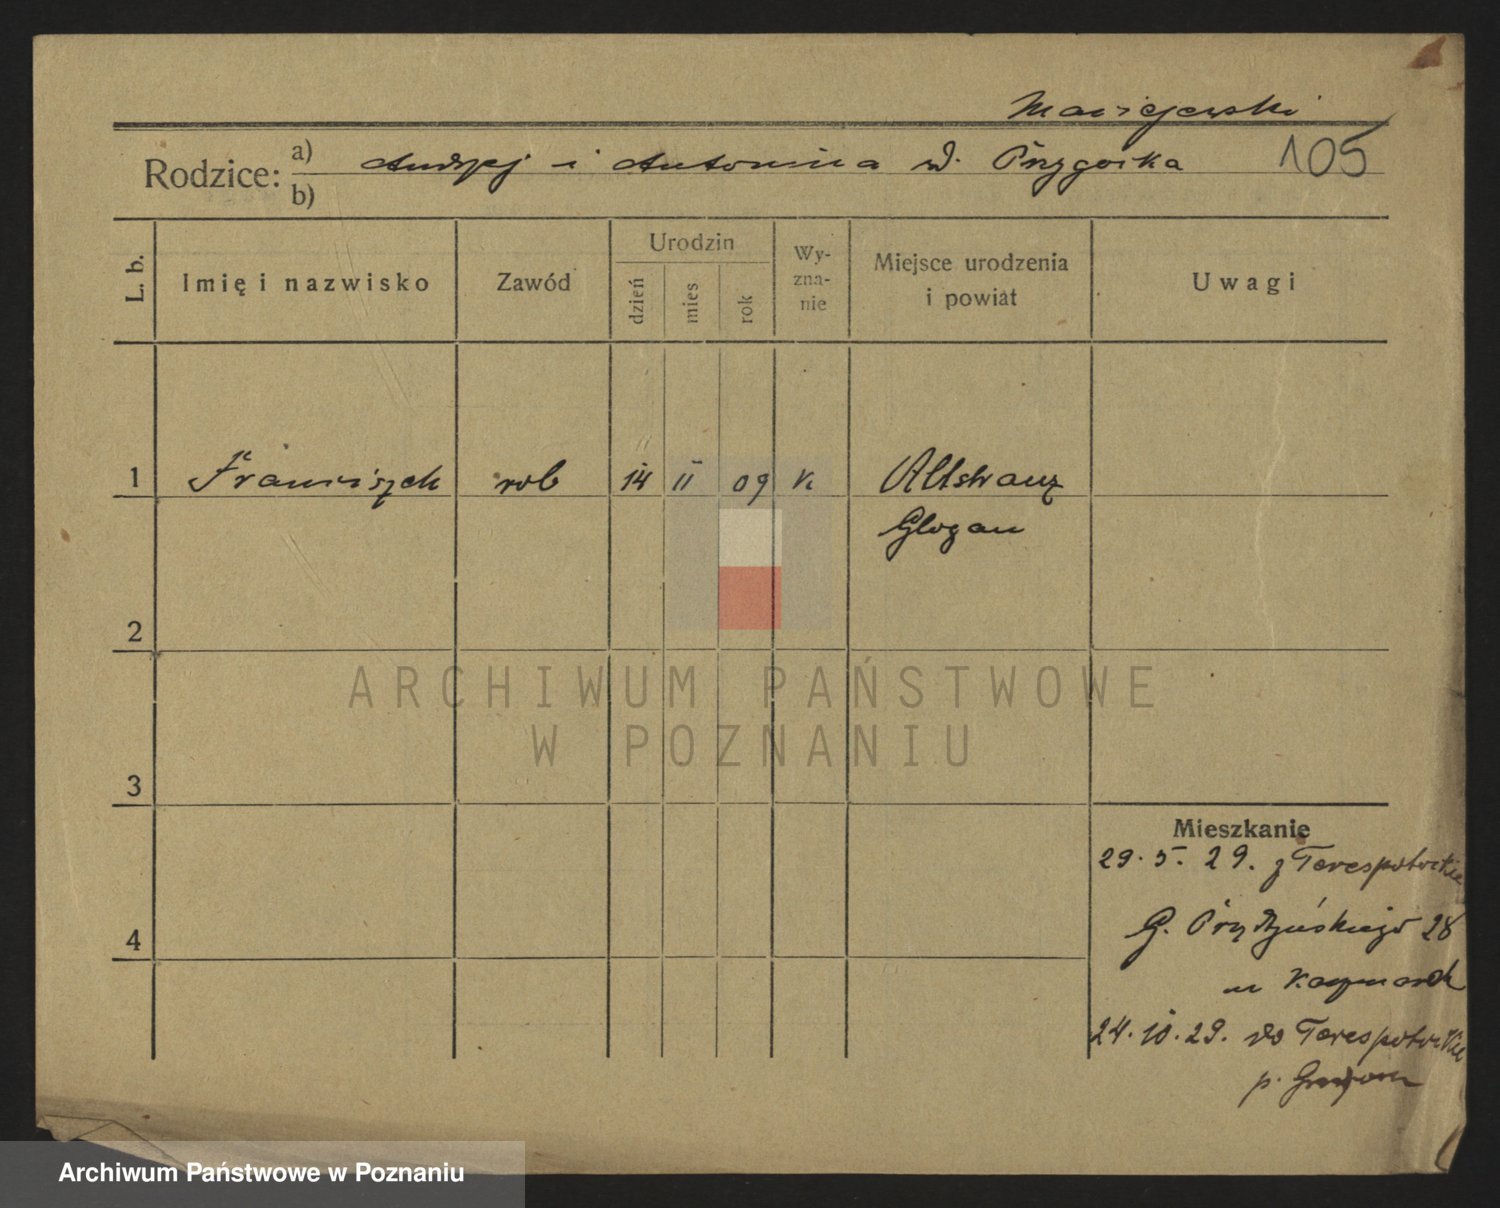 Maciejewski
Rodzice: a) Andrzej i Antonina d. Przygocka 105
b)
L. b. Imię i nazwisko Zawód Urodzin dzień mies rok Wyznanie Miejsce urodzenia i powiat Uwagi
1 Franciszek rob 14 II 09 k Altstranz
Glogau
2
ARCHIWUM PAŃSTWOWE
W POZNANIU
3
Mieszkanie
29. 5. 29. z Terespotockie
G. Prądzyńskiego 28
u Kaczmarek
4
24. 10. 29. do Terespotockie
p.
Archiwum Państwowe w Poznaniu